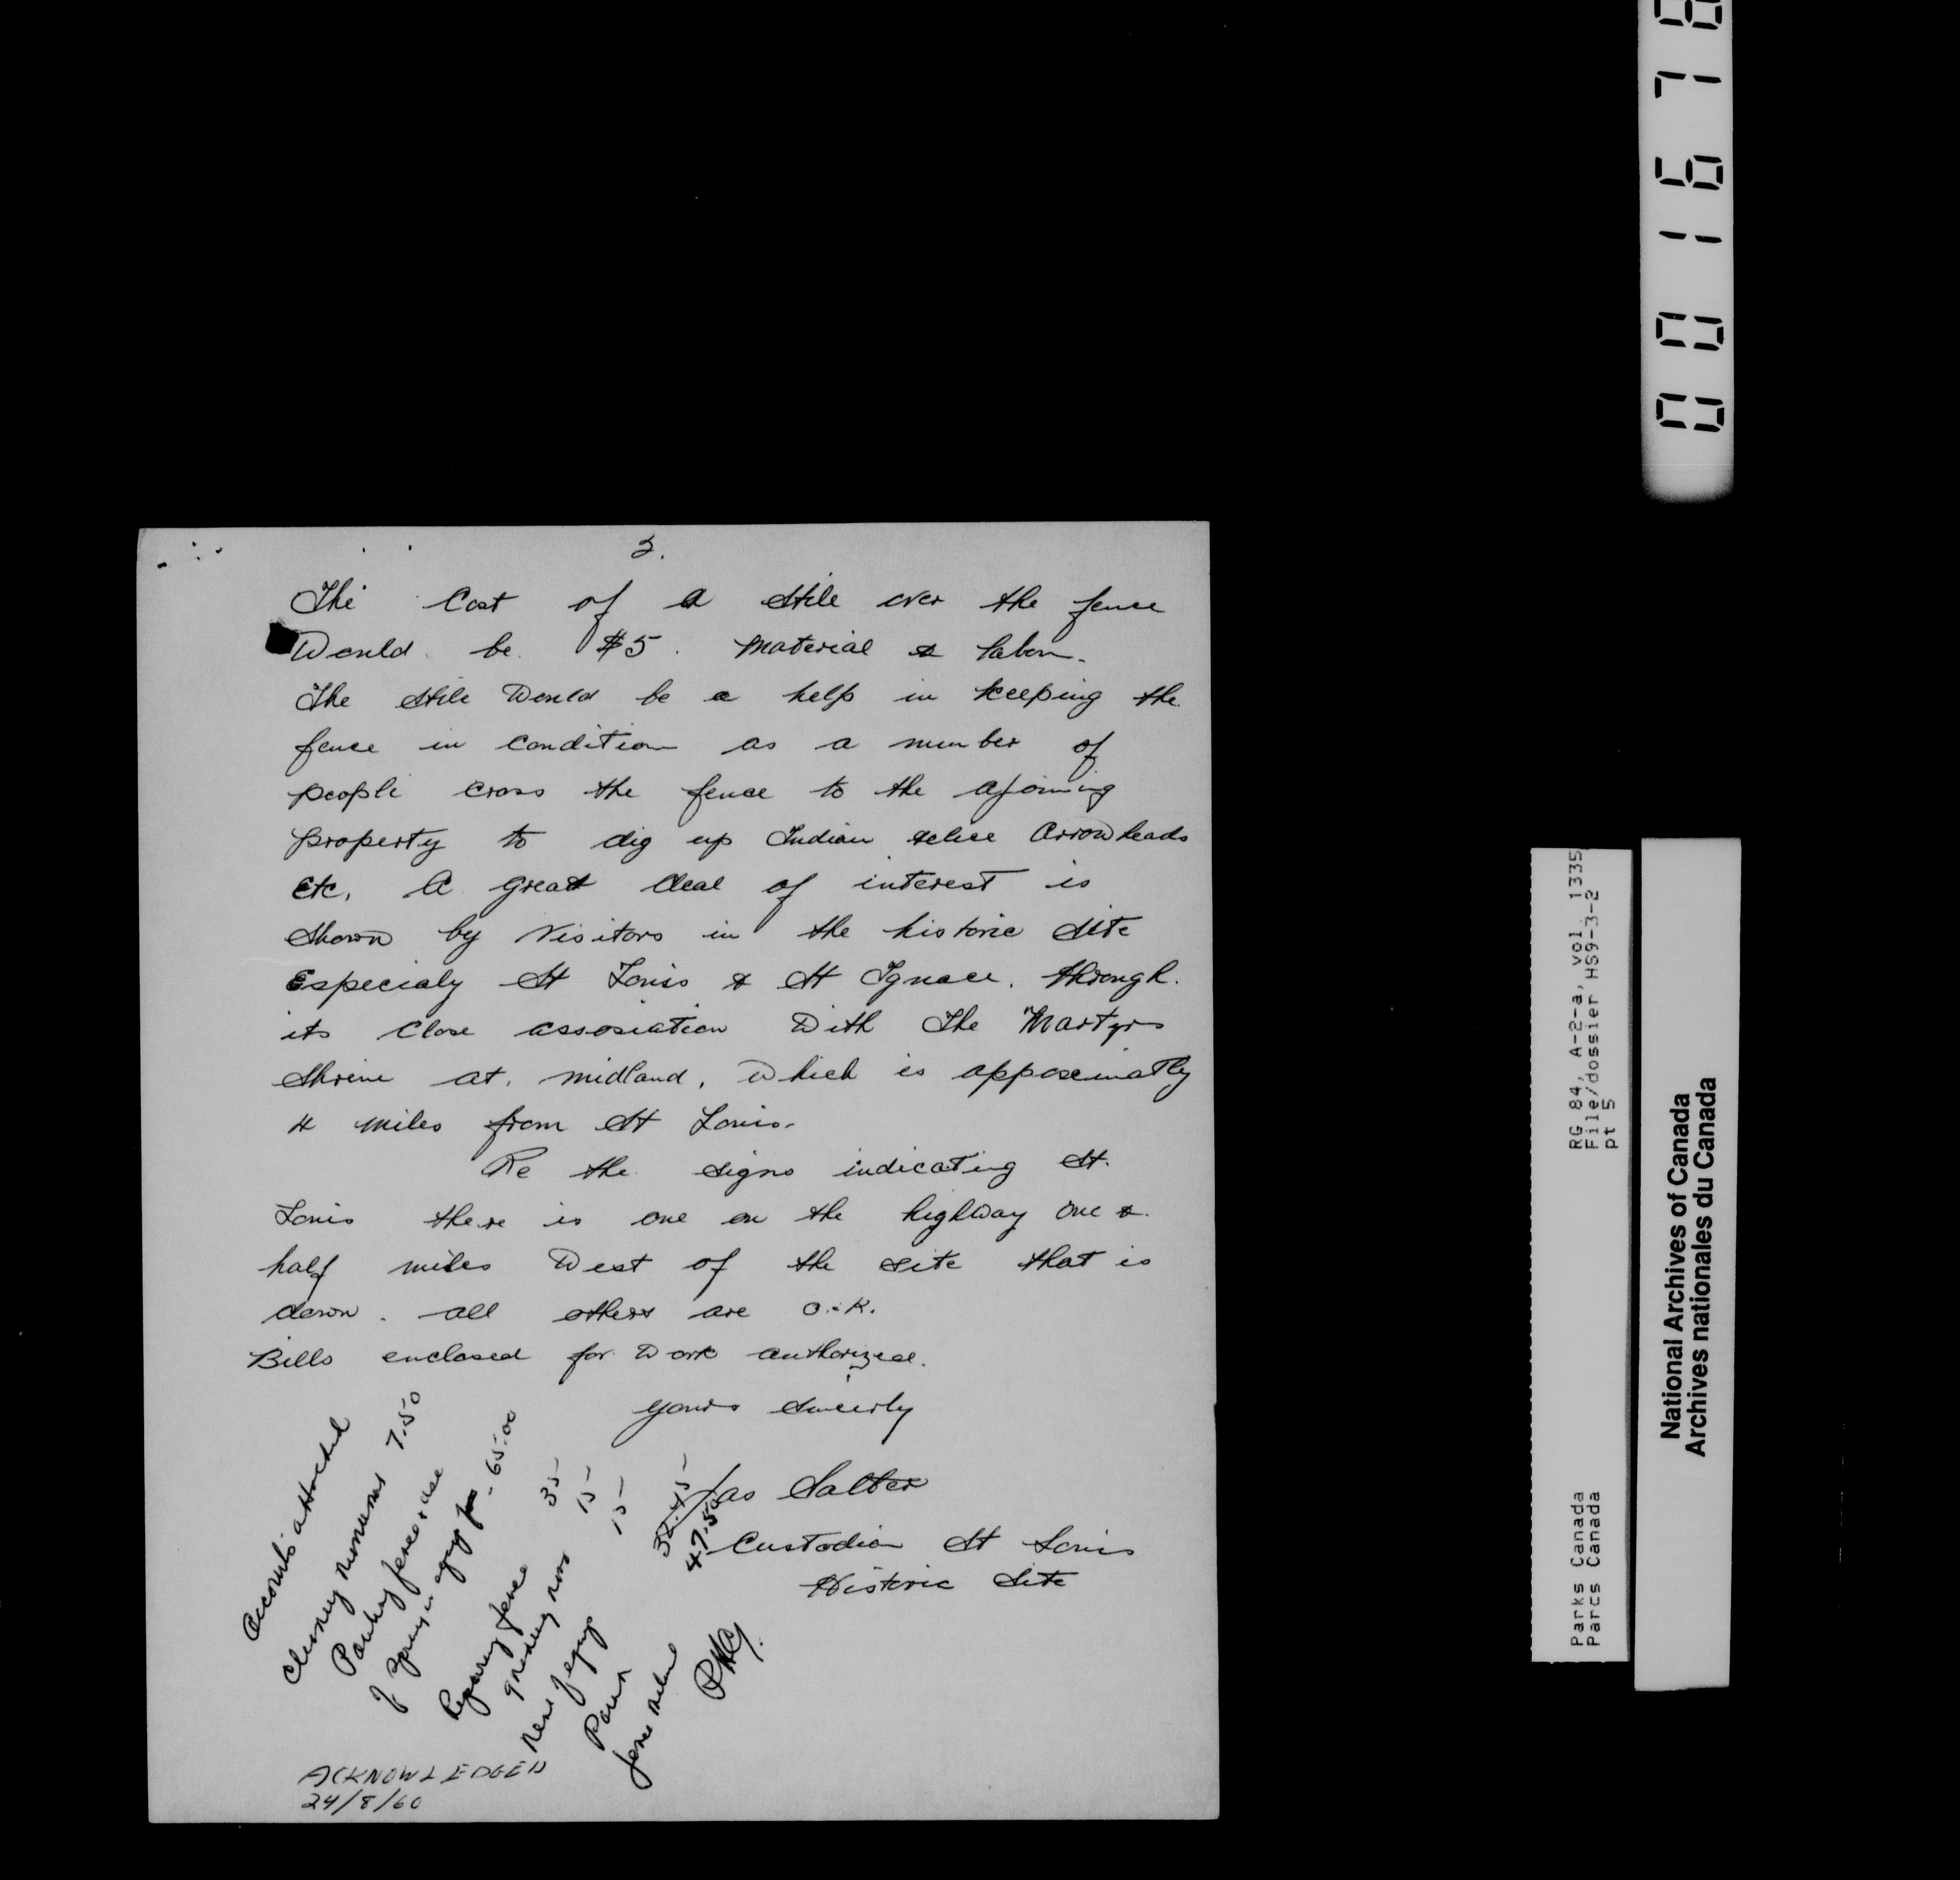 3.
The Cost of a stile over the fence
Would be $5. Material & labour.
The stile Would be a help in keeping the
fence in condition as a number of
people cross the fence to the ajoining
property to dig up Indian relice Arrowheads
Etc. A great deal of interest is
Shown by Visitors in the historic site
Especialy St Louis & St Ignace. through.
its close assosiation With The Martyrs
Shrine at. midland, Which is apposimatly
4 miles from St Louis.
Re the signs indicating St.
Louis there is one on the highway one &
half miles West of the site that is
down. all others are O.K.
Bills enclosed for Work authorized.
yours sincerly
Jas Salter
Custodian St Louis
Historic Site
Accounts attached
Cleaning 7.50
fence
65.00
Repairing fence 35
15
15
47.50
fence
ACKNOWLEDGED
24/8/60
001678
RG 84, A-2-a, vol. 1335
File/dossier HS9-3-2
pt 5
Parks Canada
Parcs Canada
National Archives of Canada
Archives nationales du Canada